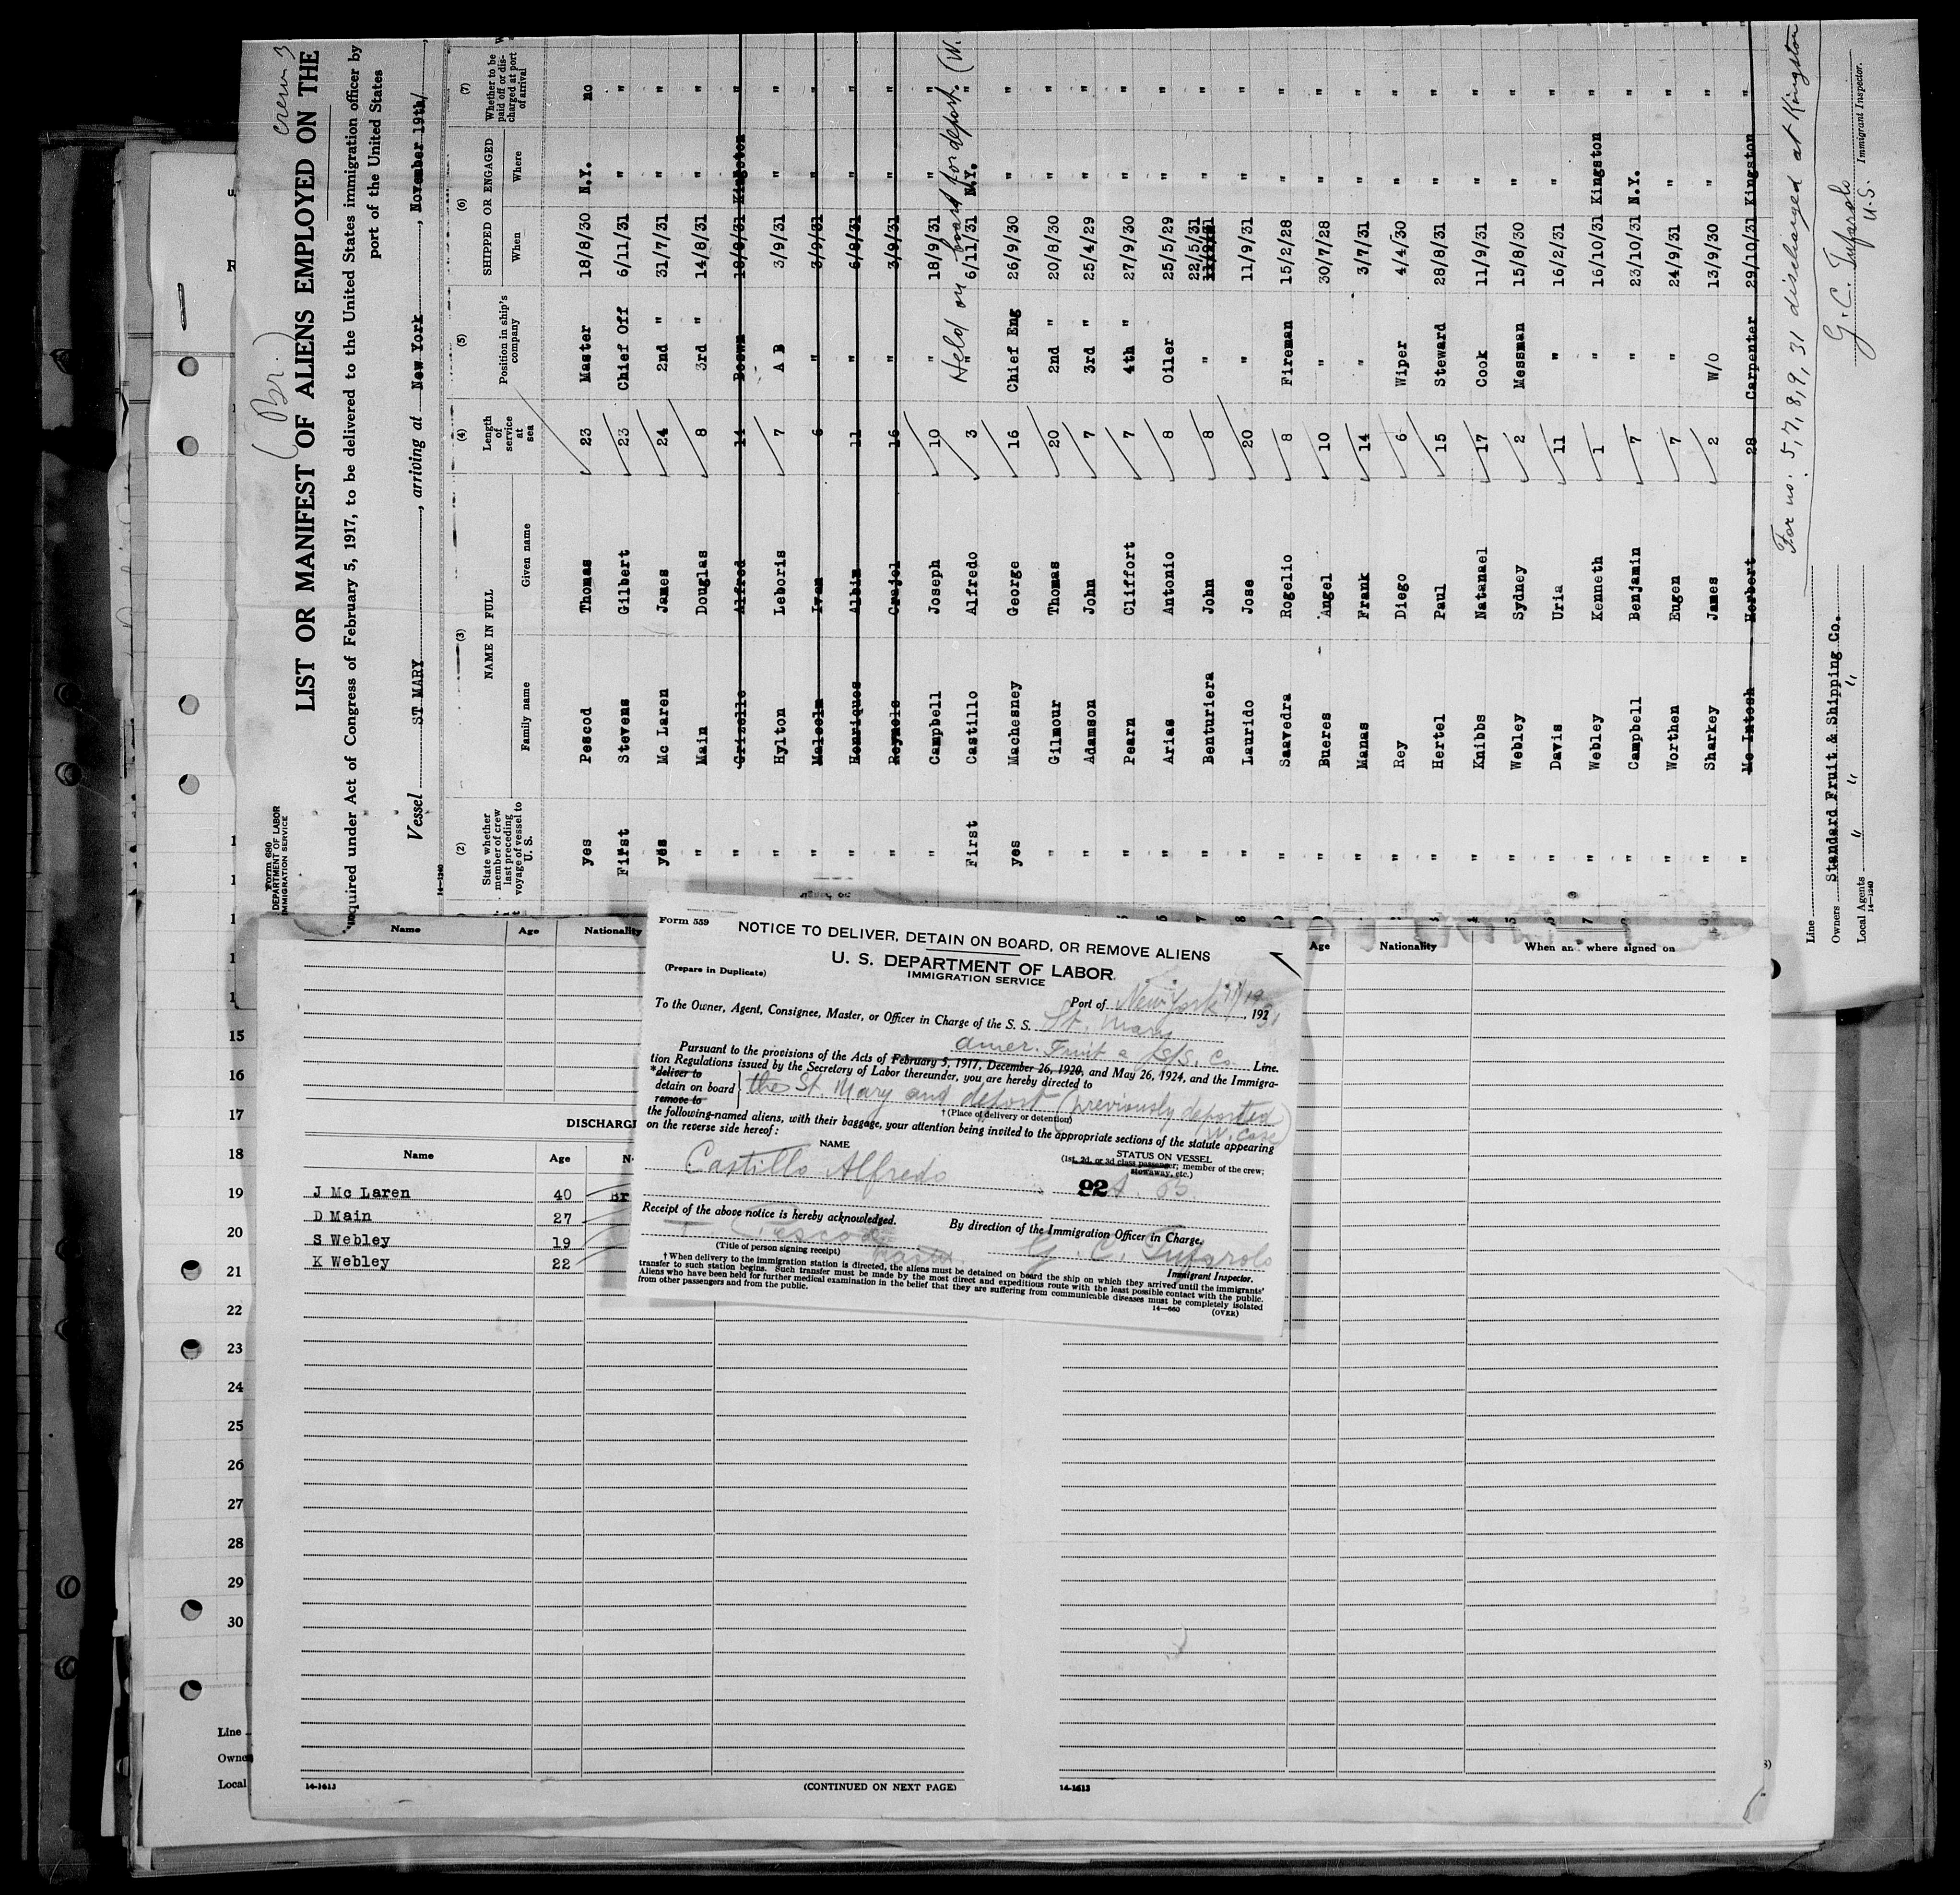 crew 3
(Br.)
Form 680
DEPARTMENT OF LABOR
IMMIGRATION SERVICE
LIST OR MANIFEST OF ALIENS EMPLOYED ON THE
quired under Act of Congress of February 5, 1917, to be delivered to the United States immigration officer by
port of the United States
Vessel ST MARY, arriving at New York, November 19th/
14-1240
(2) (3) (4) (5) (6) (7)
State whether member of crew last preceding voyage of vessel to U. S.
NAME IN FULL
Family name Given name
Length of service at sea
Position in ship's company
SHIPPED OR ENGAGED
When Where
Whether to be paid off or discharged at port of arrival
yes Pescod Thomas 23 Master 18/8/30 N.Y. no
First Stevens Gilbert 23 Chief Off 6/11/31 " "
yes Mc Laren James 24 2nd " 31/7/31 " "
" Main Douglas 8 3rd " 14/8/31 " "
" Grizelle Alfred 14 Boswn 18/9/31 Kingston "
" Hylton Leboris 7 A B 3/9/31 " "
" Malcolm Ivam 6 " 3/9/31 " "
" Henriques Albim 11 " 6/8/31 " "
" Reymols 16 " 3/9/31 " "
" Campbell Joseph 10 " 18/9/31 " "
Held on board for deport. (W.
First Castillo Alfredo 3 " 6/11/31 N.Y. "
yes Machesney George 16 Chief Eng 26/9/30 " "
" Gilmour Thomas 20 2nd " 20/8/30 " "
" Adamson John 7 3rd " 25/4/29 " "
" Pearn Cliffort 7 4th " 27/9/30 " "
" Arias Antonio 8 Oiler 25/5/29 " "
" Benturiera John 8 " 22/5/31 " "
" Laurido Jose 20 " 11/9/31 " "
" Saavedra Rogelio 8 Fireman 15/2/28 " "
" Bueres Angel 10 " 30/7/28 " "
" Manas Frank 14 " 3/7/31 " "
" Rey Diego 6 Wiper 4/4/30 " "
" Hertel Paul 15 Steward 28/8/31 " "
" Knibbs Natanael 17 Cook 11/9/31 " "
" Webley Sydney 2 Messman 15/8/30 " "
" Davis Uria 11 " 16/2/31 " "
" Webley Kenneth 1 " 16/10/31 Kingston "
" Campbell Benjamin 7 " 23/10/31 N.Y. "
" Worthen Eugen 7 " 24/9/31 " "
" Sharkey James 2 W/O 13/9/30 " "
" Mc Intosh Herbert 28 Carpenter 29/10/31 Kingston "
For no. 5, 7, 8, 9, 31 discharged at Kingston
Line
Owners Standard Fruit & Shipping Co.
Local Agents " " "
14-1240
G. C. Tufarolo
U.S. Immigrant Inspector.
Name Age Nationality
Age Nationality When and where signed on
DISCHARG
Name Age N
J Mc Laren 40 Br
D Main 27
S Webley 19
K Webley 22
Form 559
NOTICE TO DELIVER, DETAIN ON BOARD, OR REMOVE ALIENS
U. S. DEPARTMENT OF LABOR
IMMIGRATION SERVICE
(Prepare in Duplicate)
Port of New York 11/19, 1921 31
To the Owner, Agent, Consignee, Master, or Officer in Charge of the S. S. St. Mary
Amer. Fruit & S/S. Co. Line.
Pursuant to the provisions of the Acts of February 5, 1917, December 26, 1920, and May 26, 1924, and the Immigra-
tion Regulations issued by the Secretary of Labor thereunder, you are hereby directed to
*deliver to
detain on board
remove to
the St. Mary and deport (previously deported W. Case)
† (Place of delivery or detention)
the following-named aliens, with their baggage, your attention being invited to the appropriate sections of the statute appearing
on the reverse side hereof:
NAME
STATUS ON VESSEL
(1st, 2d, or 3d class passenger; member of the crew;
stowaway, etc.)
Castillo Alfredo
92
Receipt of the above notice is hereby acknowledged.
By direction of the Immigration Officer in Charge.
T Pescod
Master
(Title of person signing receipt)
G. C. Tufarolo
Immigrant Inspector.
† When delivery to the immigration station is directed, the aliens must be detained on board the ship on which they arrived until the immigrants'
transfer to such station begins. Such transfer must be made by the most direct and expeditious route with the least possible contact with the public.
Aliens who have been held for further medical examination in the belief that they are suffering from communicable diseases must be completely isolated
from other passengers and from the public.
14—660 (OVER)
15
16
17
18
19
20
21
22
23
24
25
26
27
28
29
30
Line
Owne
Local
14-1613 (CONTINUED ON NEXT PAGE) 14-1613